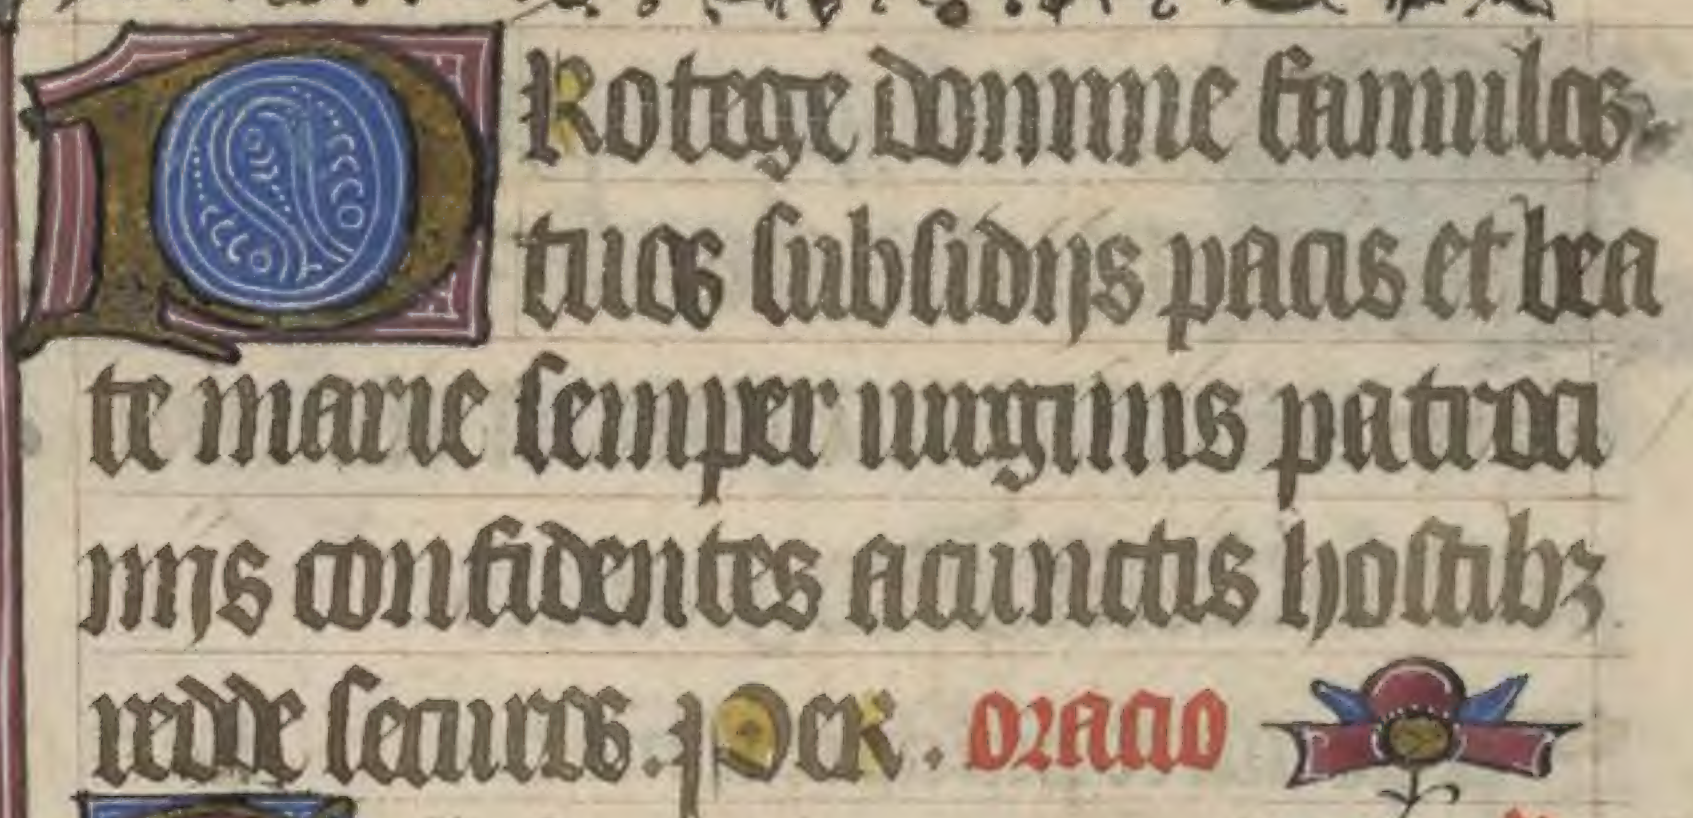 PRotege domine famulos
tuos subsidijs pacis et bea
te marie semper uirginis patroci
nijs confidentes acunctis hostibꝫ
redde securos. PeR. oracio